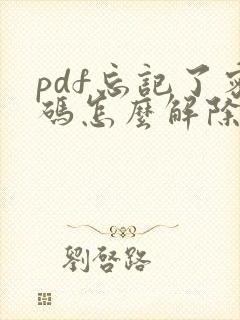 pdf忘記了密
碼怎麼解除
劉啓路